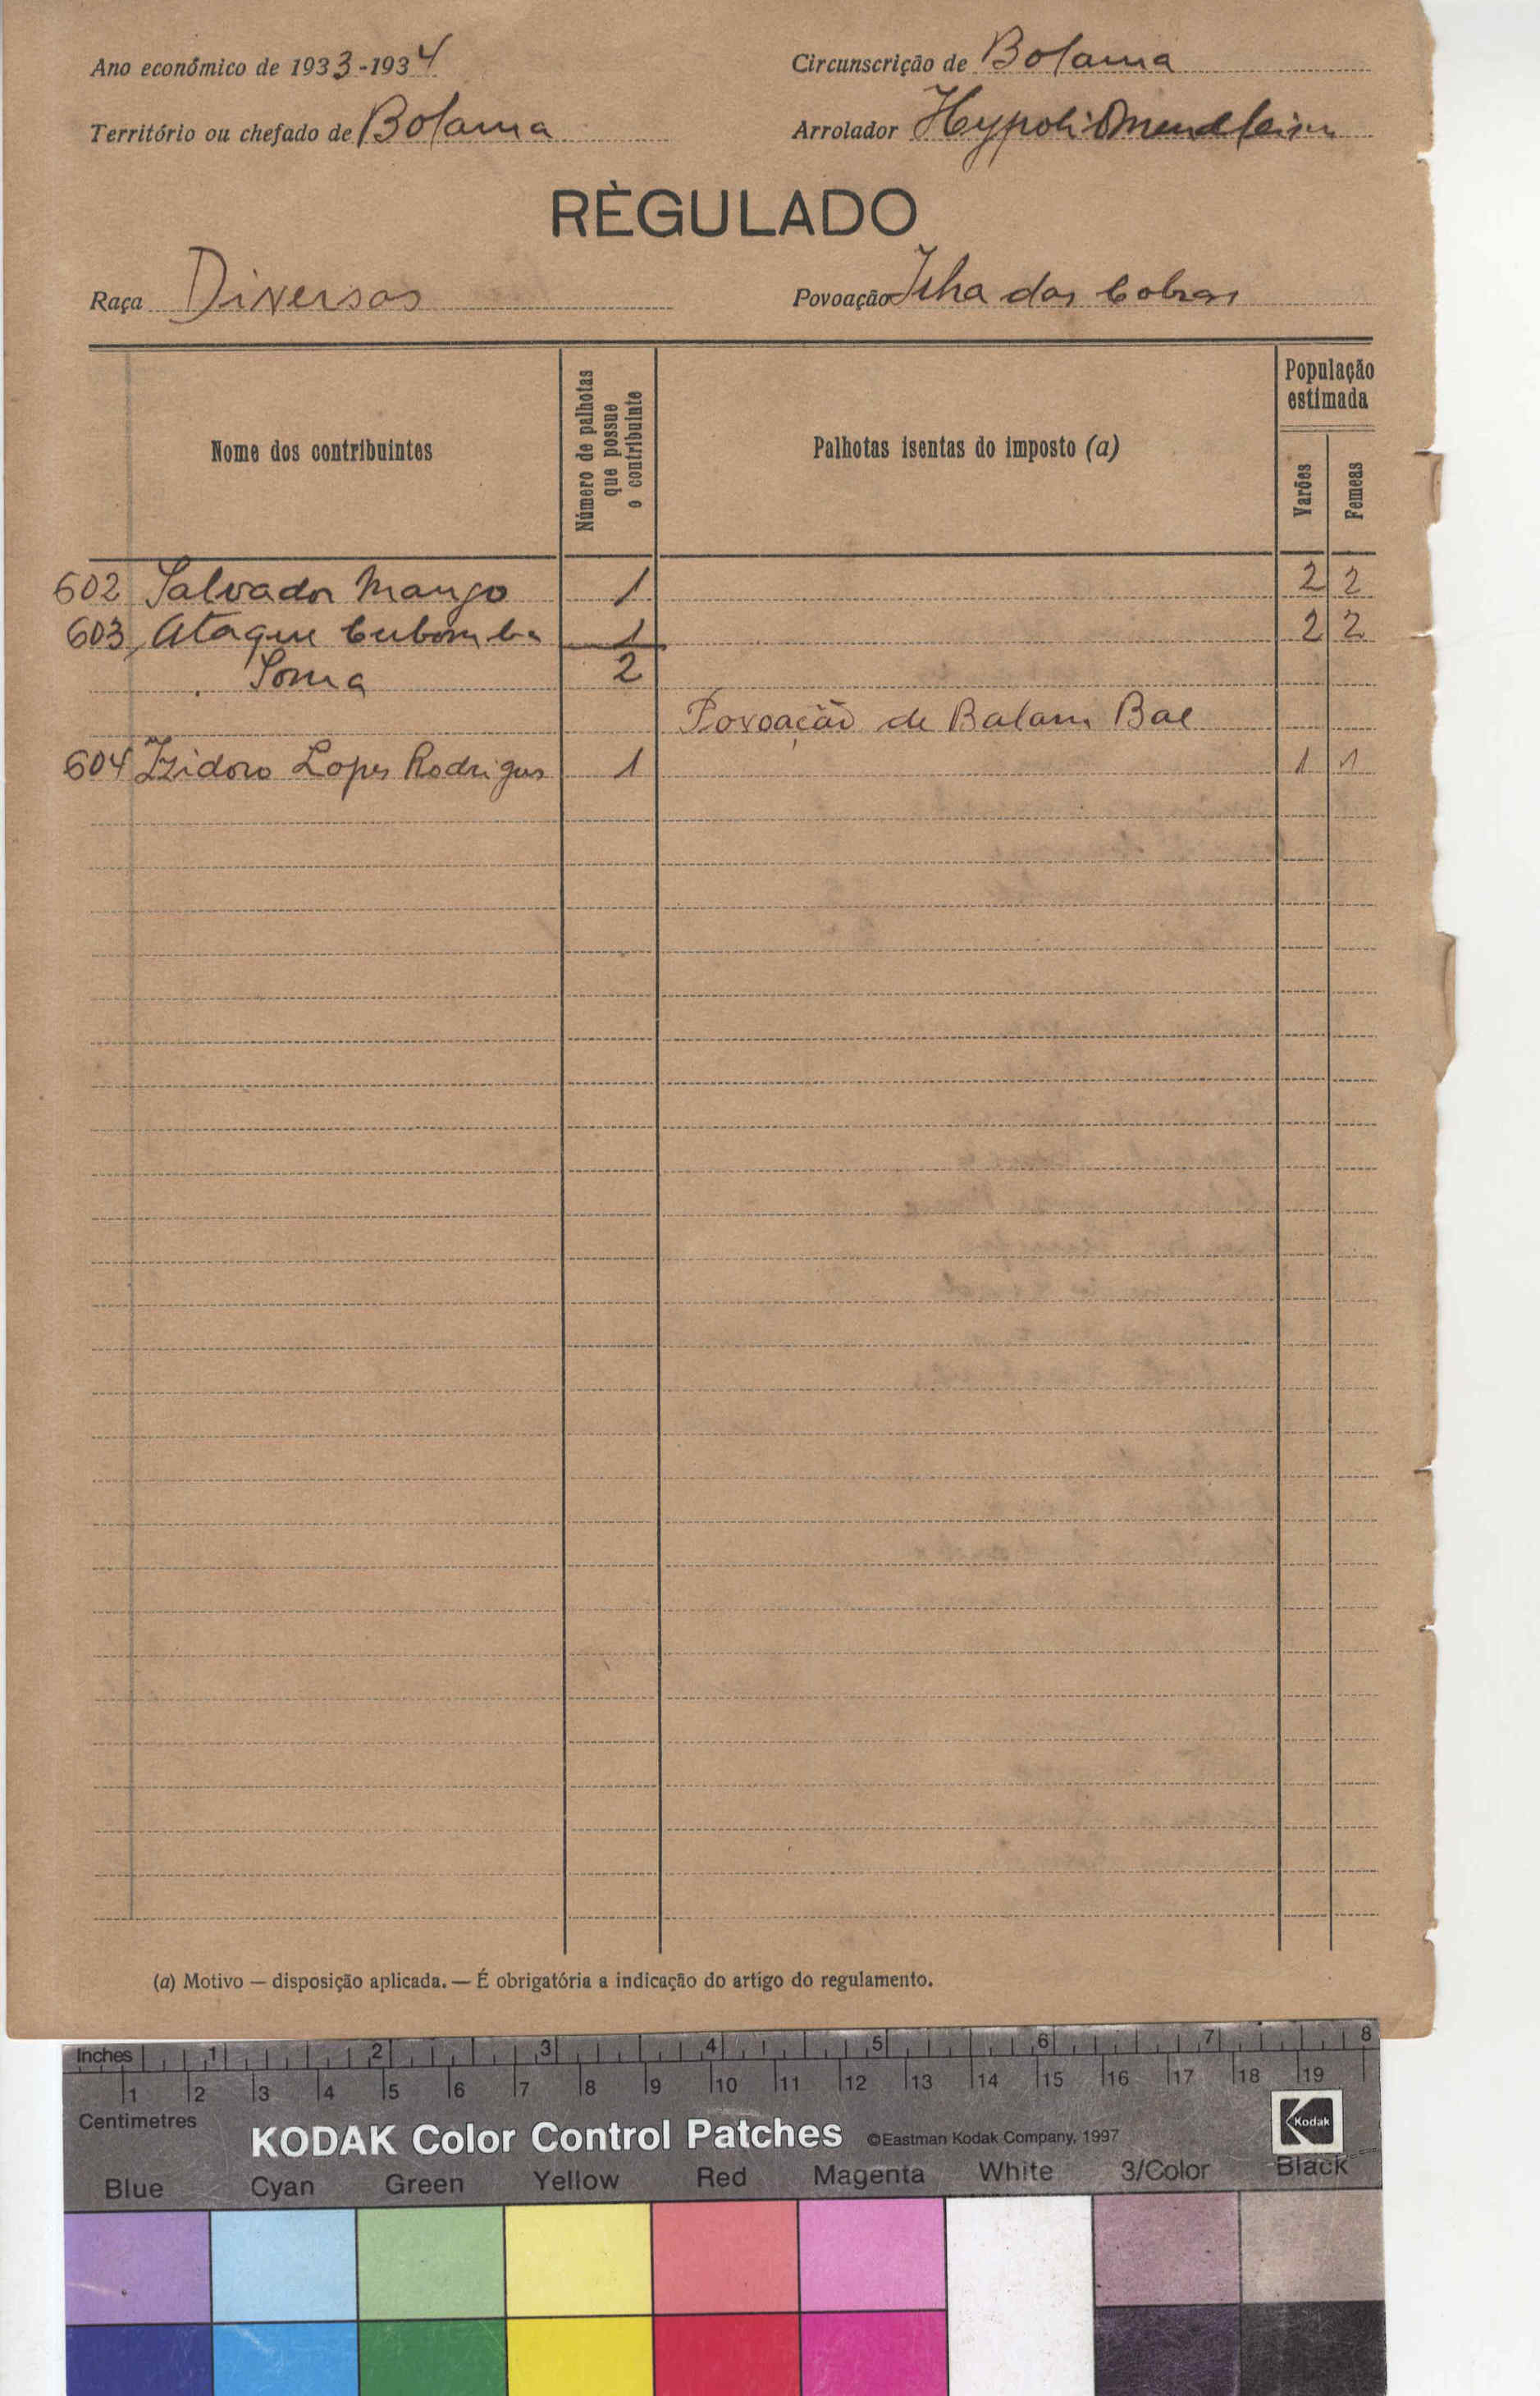 Ano económico de 1933-1934
Circunscrição de Bolama
Território ou chefado de Bolama
Arrolador Hypolito
RÈGULADO
Raça Diversos
Povoação Ilha das Cobras
Nome dos contribuintes
Número de palhotas
que possue
o contribuinte
Palhotas isentas do imposto (a)
População
estimada
Varões
Femeas
602 Salvador Mango 1 2 2
603 Ataque 1 2 2
Soma 2
Povoação de Balam Bal
604 Izidoro Lopes Rodrigues 1 1 1
(a) Motivo — disposição aplicada. — É obrigatória a indicação do artigo do regulamento.
Inches 1 2 3 4 5 6 7 8
1 2 3 4 5 6 7 8 9 10 11 12 13 14 15 16 17 18 19
Centimetres
KODAK Color Control Patches ©Eastman Kodak Company, 1997 Kodak
Blue Cyan Green Yellow Red Magenta White 3/Color Black